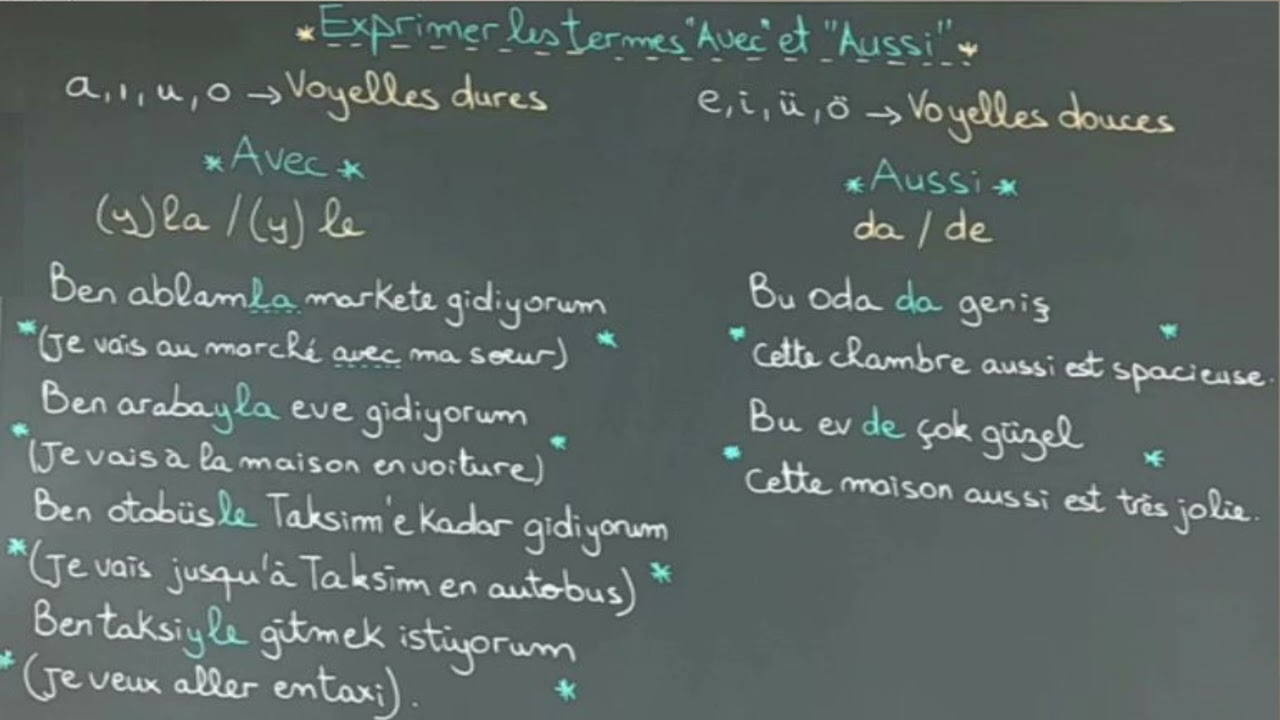 *Exprimer les termes "Avec" et "Aussi"*
a, ı, u, o → Voyelles dures
*Avec*
(y)la / (y) le
Ben ablamla markete gidiyorum
*(Je vais au marché avec ma sœur)*
Ben arabayla eve gidiyorum
*(Je vais à la maison en voiture)*
Ben otobüsle Taksim'e Kadar gidiyorum
*(Je vais jusqu'à Taksim en autobus)*
Ben taksiyle gitmek istiyorum
*(Je veux aller en taxi).*
e, i, ü, ö → Voyelles douces
*Aussi*
da / de
Bu oda da geniş
*Cette chambre aussi est spacieuse.*
Bu ev de çok güzel
*Cette maison aussi est très jolie.*